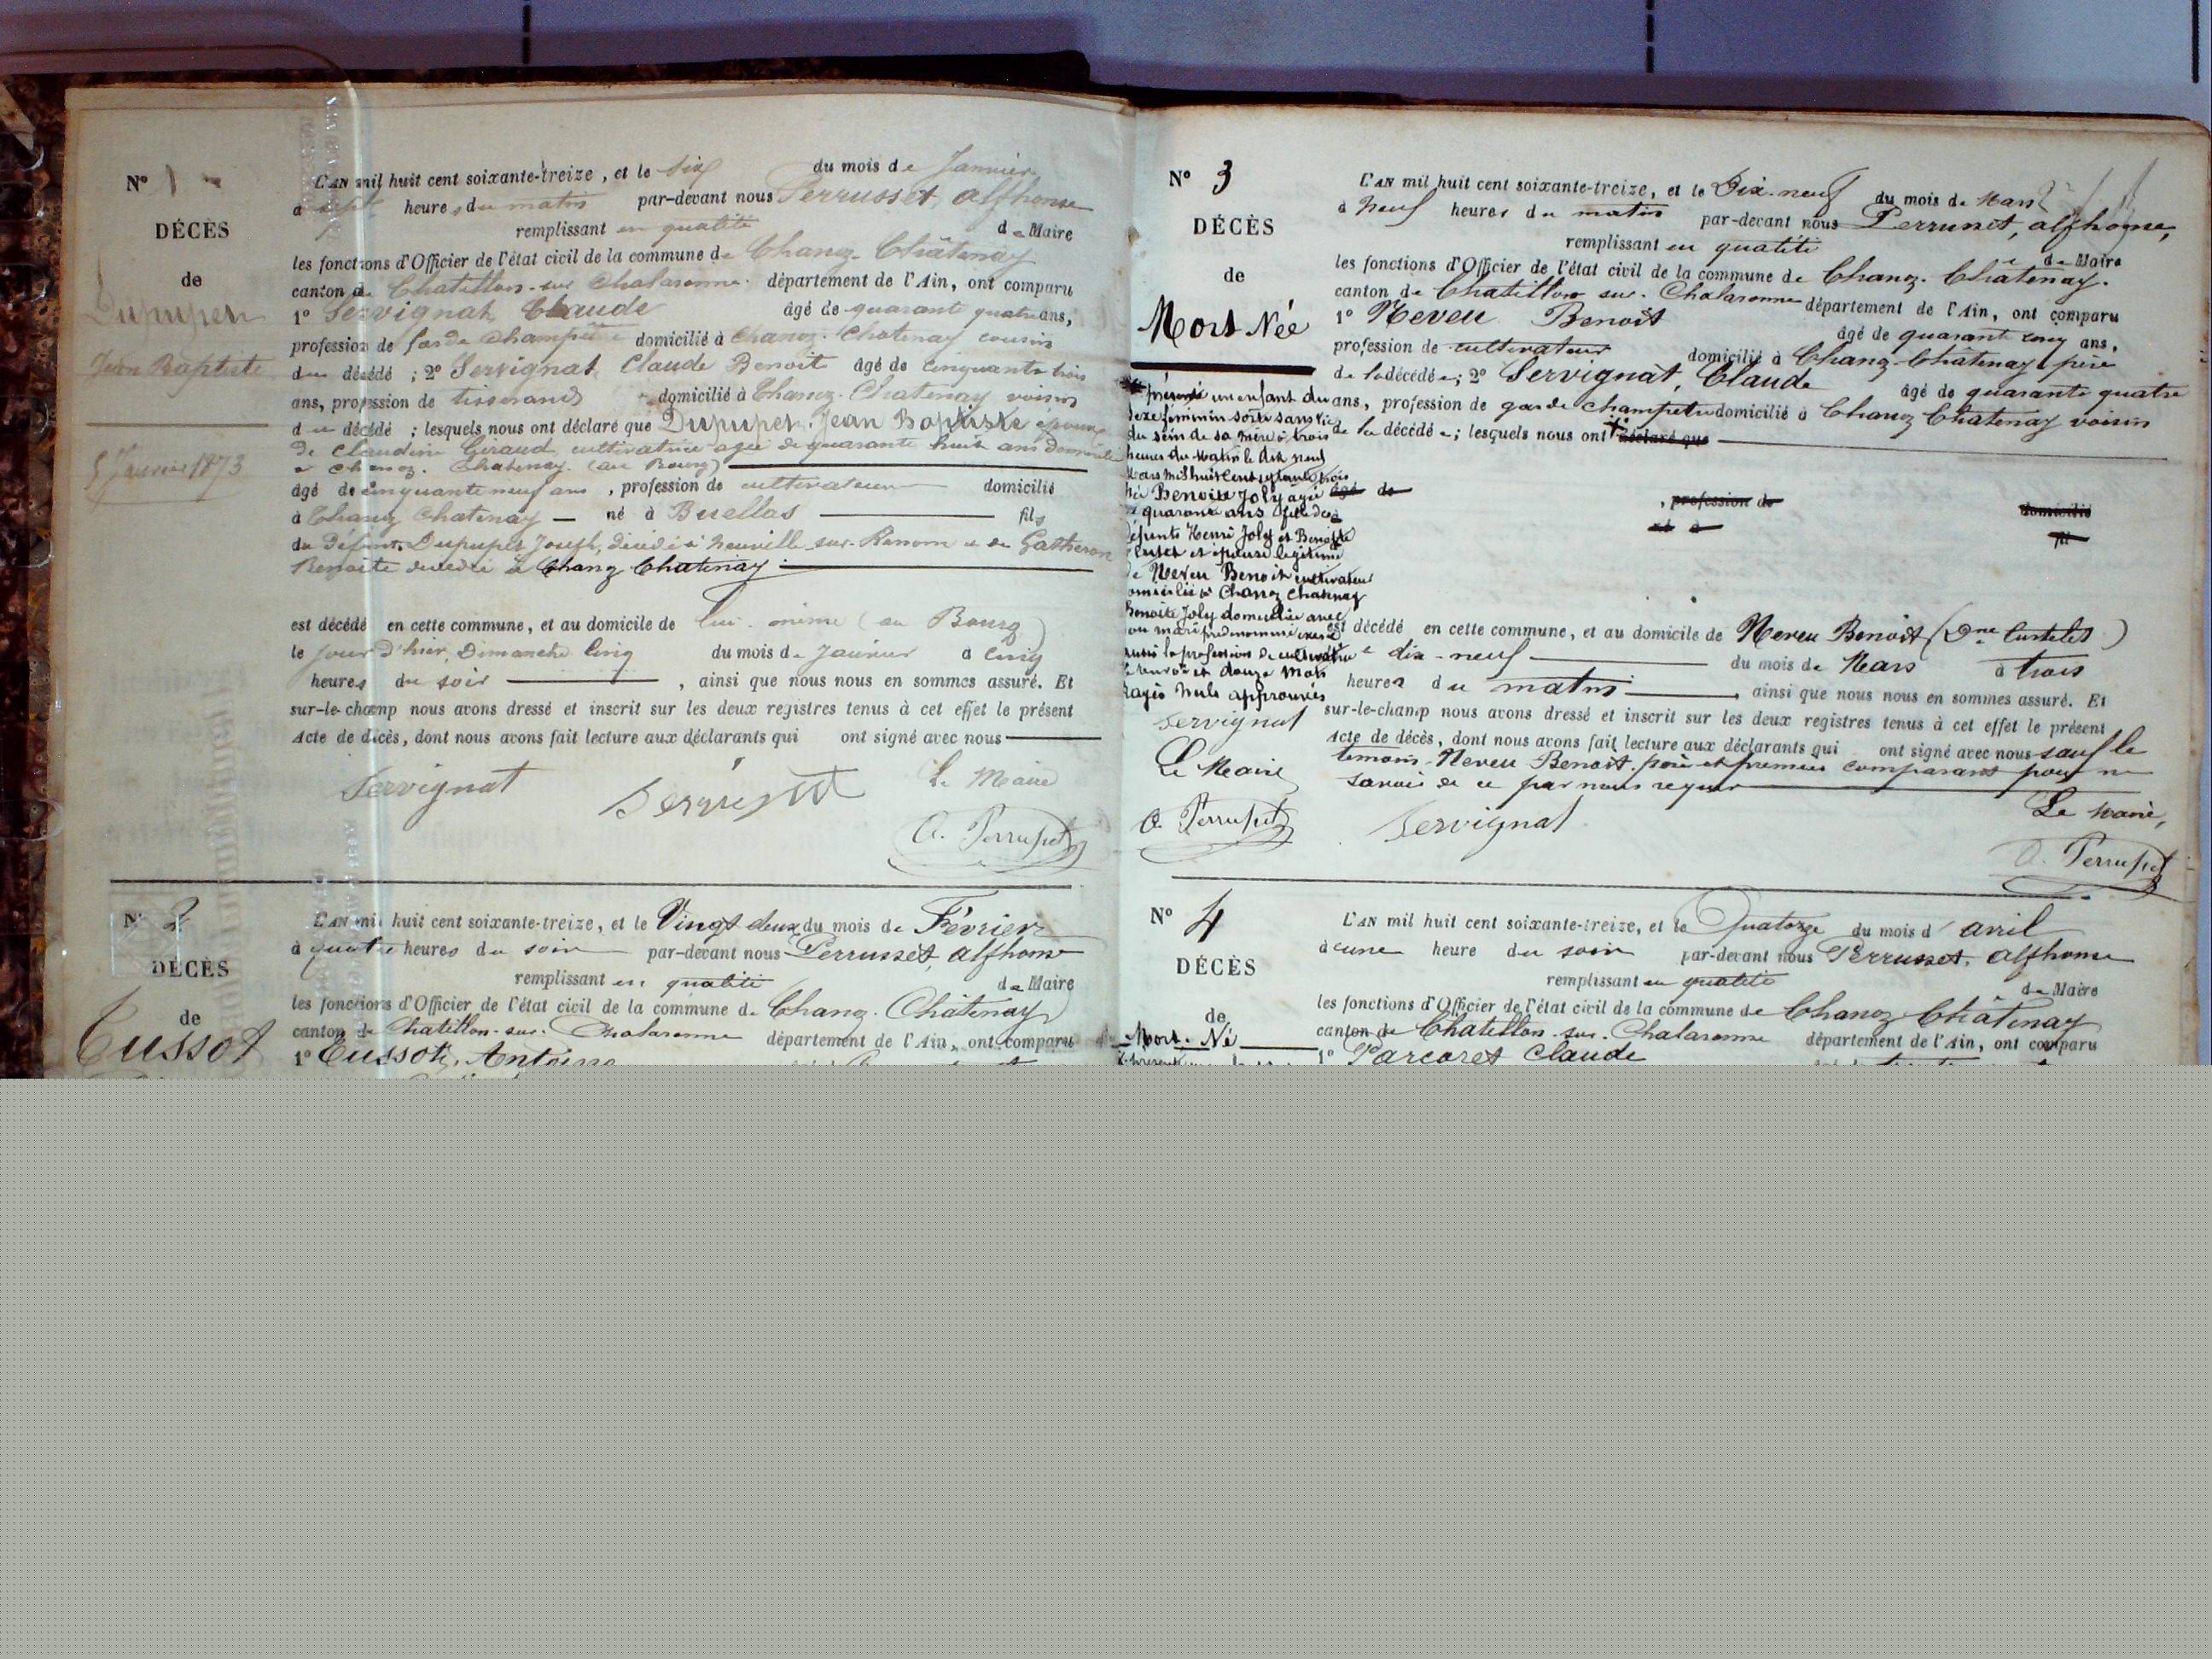 N° 1
DÉCÈS
de
Dupuper
Jean Baptiste
5 Janvier 1873
L'AN mil huit cent soixante-treize, et le six du mois de Janvier
à sept heures du matin par-devant nous Perrusset, alphonse
remplissant en qualité de Maire
les fonctions d'Officier de l'état civil de la commune de Chanoz-Châtenay
canton de Chatillon-sur Chalaronne département de l'Ain, ont comparu
1° Servignat Claude âgé de quarant quatre ans,
profession de garde champêtre domicilié à Chanoz-Chatenay cousin
du décédé ; 2° Servignat Claude Benoit âgé de cinquante trois
ans, profession de tisserand domicilié à Chanoz-Chatenay voisin
du décédé ; lesquels nous ont déclaré que Dupuper, Jean Baptiste époux
de Claudine Giraud cultivatrice agée de quarante huit ans domiciliée
à Chanoz-Chatenay (au Bourg)
âgé de cinquante neuf ans, profession de cultivateur domicilié
à Chanoz Chatenay né à Buellas fils
du défunt Dupuper Joseph, décédé à Neuville sur Renom et de Gatheron
Benoite decedée à Chanoz Chatenay
est décédé en cette commune, et au domicile de lui-même (au Bourg)
le jour d'hier, Dimanche cinq du mois de Janvier à cinq
heures du soir, ainsi que nous nous en sommes assuré. Et
sur-le-champ nous avons dressé et inscrit sur les deux registres tenus à cet effet le présent
acte de décès, dont nous avons fait lecture aux déclarants qui ont signé avec nous
Servignat Servignat Le Maire
A. Perrusset
N° 2
DÉCÈS
de
Cussot
L'AN mil huit cent soixante-treize, et le Vingt deux du mois de Février
à quatre heures du soir par-devant nous Perrusset, alphonse
remplissant en qualité de Maire
les fonctions d'Officier de l'état civil de la commune de Chanoz-Châtenay
canton de Chatillon-sur-Chalaronne département de l'Ain, ont comparu
1° Cussot, Antoine
N° 3
DÉCÈS
de
Mort Née
présenté un enfant du
sexe féminin sorti sans vie
du sein de sa mère à trois
heures du matin le dix neuf
Mars mil huit cent soixante treize
née Benoite Joly agée
de quarante ans fille des
défunts Henri Joly et Benoite
et épouse légitime
de Neveu Benoit cultivateur
domicilié à Chanoz Chatenay
Benoite Joly domiciliée avec
son mari prénommé exerce
aussi la profession de cultivatrice
Le renvoi et douze mots
rayés nuls approuvés
Servignat
Le Maire
A. Perrusset
L'AN mil huit cent soixante-treize, et le Dix-neuf du mois de Mars
à neuf heures du matin par-devant nous Perrusset, alphonse,
remplissant en qualité de Maire
les fonctions d'Officier de l'état civil de la commune de Chanoz-Châtenay.
canton de Chatillon sur-Chalaronne département de l'Ain, ont comparu
1° Neveu Benoit âgé de quarant cinq ans,
profession de cultivateur domicilié à Chanoz-Châtenay père
de la décédée ; 2° Servignat, Claude âgé de quarante quatre
ans, profession de garde champetre domicilié à Chanoz Chatenay voisin
de la décédée ; lesquels nous ont déclaré que
âgé de, profession de domicilié
né à fil
est décédé en cette commune, et au domicile de Neveu Benoit
le dix-neuf du mois de Mars à trois
heures du matin, ainsi que nous nous en sommes assuré. Et
sur-le-champ nous avons dressé et inscrit sur les deux registres tenus à cet effet le présent
acte de décès, dont nous avons fait lecture aux déclarants qui ont signé avec nous sauf le
temoin Neveu Benoit père et premier comparant pour ne
savoir de ce par nous requis
Servignat Le Maire,
A. Perrusset
N° 4
DÉCÈS
de
Mort-Né
L'AN mil huit cent soixante-treize, et le Quatorze du mois d'avril
à une heure du soir par-devant nous Perrusset, alphonse
remplissant en qualité de Maire
les fonctions d'Officier de l'état civil de la commune de Chanoz Châtenay
canton de Chatillon-sur-Chalaronne département de l'Ain, ont comparu
1° Parcoret Claude